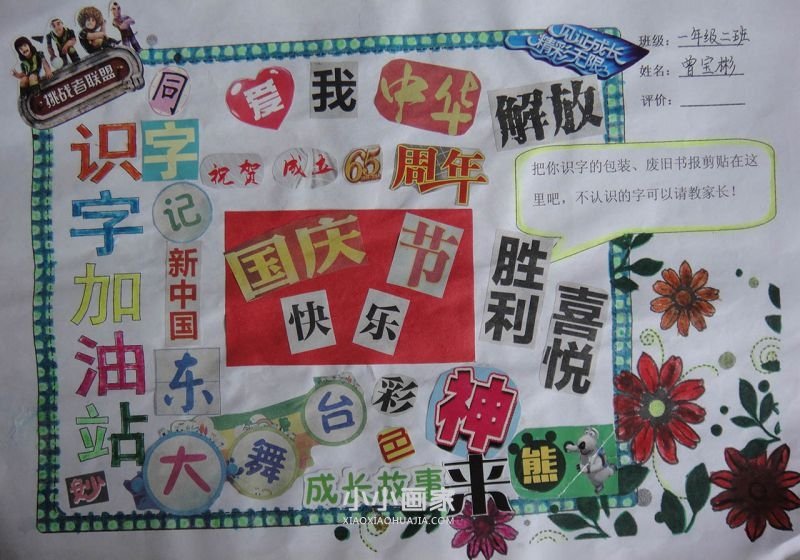 挑战者联盟
见证成长
精彩无限
班级：一年级二班
姓名：曾宝彬
评价：
同
爱
我
中华
解放
识字加油站
字
祝贺
成立
65
周年
把你识字的包装、废旧书报剪贴在这
里吧，不认识的字可以请教家长！
记
新中国
国庆
节
快
乐
胜利
喜悦
东
大
舞
台
彩
色
神
来
熊
妙
成长故事
小小画家
XIAOXIAOHUAJIA.COM